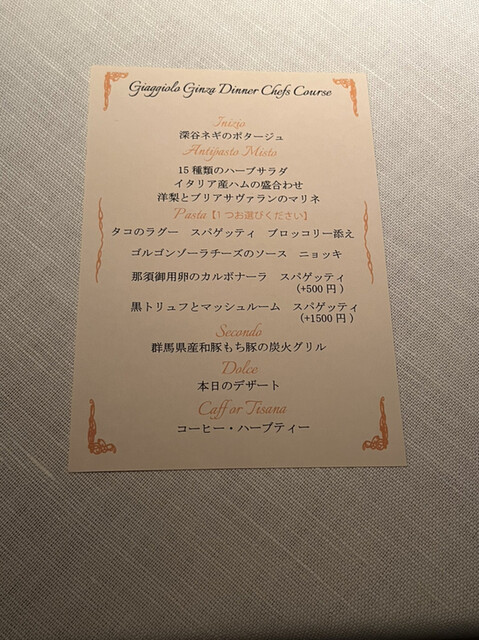 Giaggiolo Ginza Dinner Chefs Course
Inizio
深谷ネギのポタージュ
Antipasto Misto
15種類のハーブサラダ
イタリア産ハムの盛合わせ
洋梨とブリアサヴァランのマリネ
Pasta【1つお選びください】
タコのラグー スパゲッティ ブロッコリー添え
ゴルゴンゾーラチーズのソース ニョッキ
那須御用卵のカルボナーラ スパゲッティ
(+500円)
黒トリュフとマッシュルーム スパゲッティ
(+1500円)
Secondo
群馬県産和豚もち豚の炭火グリル
Dolce
本日のデザート
Caff or Tisana
コーヒー・ハーブティー